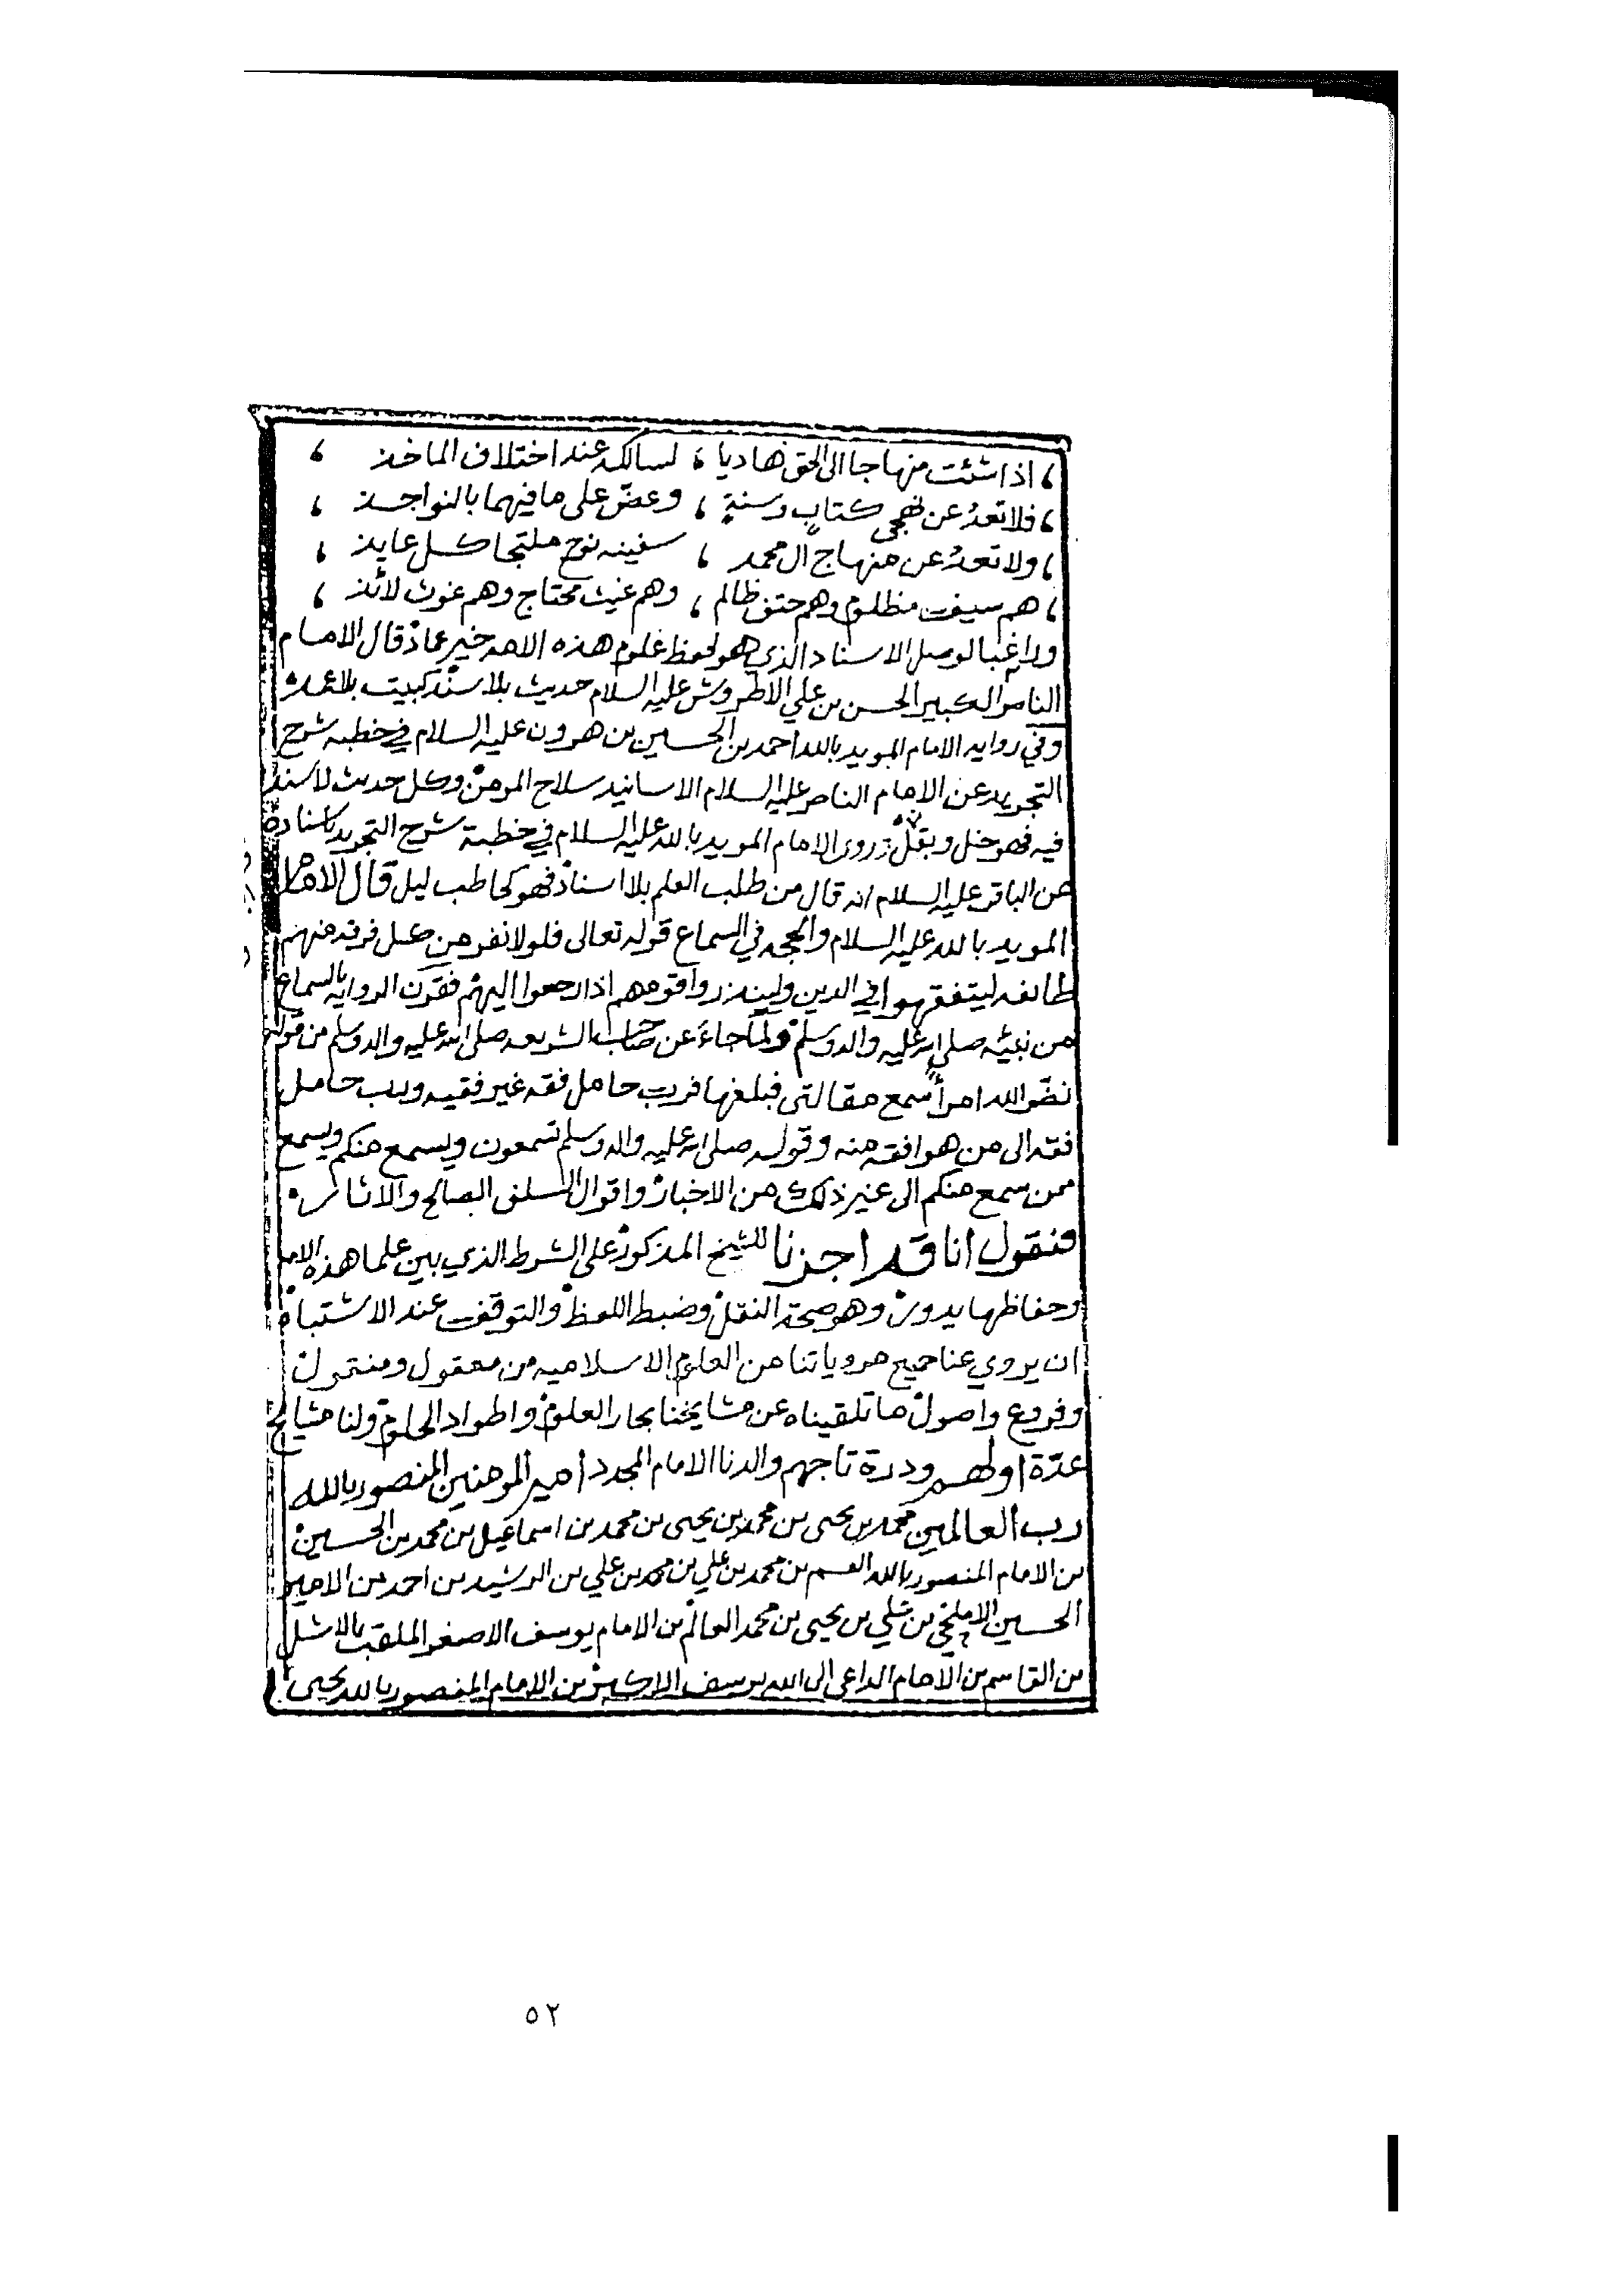 ، اذا شئت منهاجا الى الحق هاديا ، لسالكه عند اختلاف الماخذ ،
، فلا تعدُ عن نهجي كتابٍ وسنةٍ ، وعضّ على ما فيهما بالنواجذ ،
، ولا تعدُ عن منهاج ال محمد ، سفينه نوح ملتجا كل عايذ ،
، هم سيف مظلوم وهم حتف ظالم ، وهم غيث محتاج وهم غوث لائذ ،
وراغبا لوصل الاسناد الذي هو لحفظ علوم هذه الامه خير عماد قال الامام
الناصر الكبير الحسن بن علي الاطروش عليه السلام حديث بلا سند كبيت بلا عمد
وفي روايه الامام المويد بالله احمد بن الحسين بن هرون عليه السلام في خطبه شرح
التجريد عن الامام الناصر عليه السلام الاسانيد سلاح المومن وكل حديث لا سند
فيه فهو خل وبقل وروى الامام المويد بالله عليه السلام في خطبة شرح التجريد باسناده
عن الباقر عليه السلام انه قال من طلب العلم بلا اسناد فهو كحاطب ليل قال الامام
المويد بالله عليه السلام والحجه في السماع قوله تعالى فلولا نفر من كل فرقه منهم
طائفه ليتفقهوا في الدين ولينذروا قومهم اذا رجعوا اليهم فقرن الروايه بالسماع
من نبيه صلى الله عليه واله وسلم ولما جاءَ عن صاحب الشريعه صلى الله عليه واله وسلم من قوله
نضّر الله امرأً سمع مقالتي فبلغها فرب حامل فقه غير فقيه ورب حامل
فقه الى من هو افقه منه وقوله صلى الله عليه واله وسلم تسمعون ويسمع منكم ويسمع
ممن سمع منكم الى غير ذلك من الاخبار واقوال السلف الصالح والآثار
فنقول انا قد اجزنا للشيخ المذكور على الشرط الذي بين علما هذه الامه
وحفاظها يدور وهو صحة النقل وضبط اللفظ والتوقف عند الاشتباه
ان يروي عنا جميع مروياتنا من العلوم الاسلاميه من معقول ومنقول
وفروع واصول ما تلقيناه عن مشايخنا بحار العلوم واطواد الحلوم ولنا مشايخ
عدّة اولهم ودرة تاجهم والدنا الامام المجدد امير المومنين المنصور بالله
رب العالمين محمد بن يحيى بن محمد بن يحيى بن محمد بن اسماعيل بن محمد بن الحسين
بن الامام المنصور بالله القسم بن محمد بن علي بن محمد بن علي بن الرشيد بن احمد بن الامير
الحسين الاملحي بن علي بن يحيى بن محمد العالم بن الامام يوسف الاصغر الملقب بالاشل
بن القاسم بن الامام الداعي الى الله يوسف الاكبر بن الامام المنصور بالله يحيى
٥٢